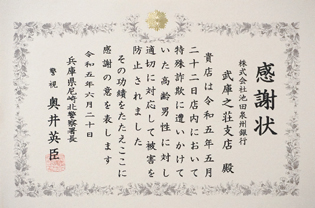 感謝状
株式会社池田泉州銀行
武庫之荘支店 殿
貴店は令和五年五月
二十二日店内において
特殊詐欺に遭いかけて
いた高齢男性に対し
適切に対応して被害を
防止されました
その功績をたたえここに
感謝の意を表します
令和五年六月二十日
兵庫県尼崎北警察署長
警視 奥井英臣